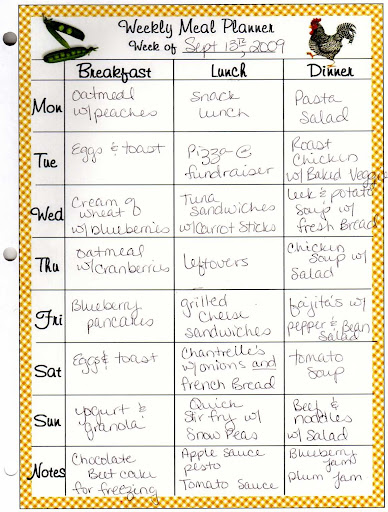 Weekly Meal Planner
Week of Sept 13th, 2009
Breakfast Lunch Dinner
Mon
Oatmeal
w/peaches
Snack
Lunch
Pasta
Salad
Tue
Eggs & toast
Pizza @
fundraiser
Roast
Chicken
w/ Baked Veggies
Wed
Cream of
wheat
w/blueberries
Tuna
Sandwiches
w/Carrot Sticks
leek & potato
Soup w/
fresh Bread
Thu
oatmeal
w/cranberries
leftovers
Chicken
Soup w/
Salad
Fri
Blueberry
pancakes
grilled
cheese
sandwiches
fajita's w/
pepper & Bean
Salad
Sat
Eggs & toast
Chantrelle's
w/onions and
French Bread
tomato
Soup
Sun
yogurt &
granola
Quick
Stir fry w/
Snow Peas
Beef &
noodles
w/ Salad
Notes
Chocolate
Beet cake
for freezing
Apple Sauce
pesto
Tomato Sauce
Blueberry
Jam
plum Jam